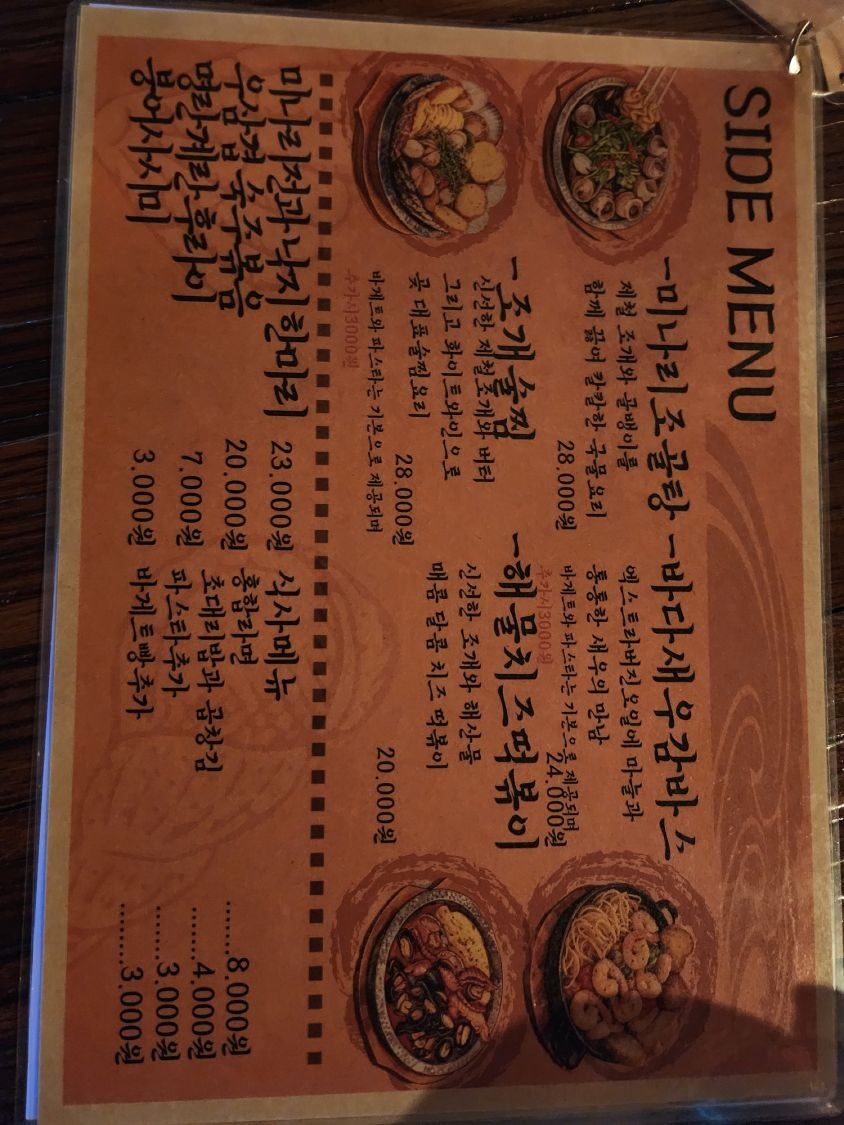 SIDE MENU
-미나리조골탕
제철 조개와 골뱅이를
함께 끓여 칼칼한 국물요리
28.000원
-바다새우감바스
엑스트라버진오일에 마늘과
통통한 새우의 만남
바게트와 파스타는 기본으로 제공되며
추가시3000원
24.000원
-조개술찜
신선한 제철조개와 버터
그리고 화이트와인으로
곶 대표술찜요리
28.000원
바게트와 파스타는 기본으로 제공되며
추가시3000원
-해물치즈떡볶이
신선한 조개와 해산물
매콤 달콤 치즈 떡볶이
20.000원
미나리전과낙지한마리 23.000원
우삼겹 숙주볶음 20.000원
명란계란후라이 7.000원
붕어사시미 3.000원
식사메뉴
홍합라면 ........8.000원
초대리밥과 곱창김 ........4.000원
파스타추가 ........3.000원
바게트빵추가 ........3.000원